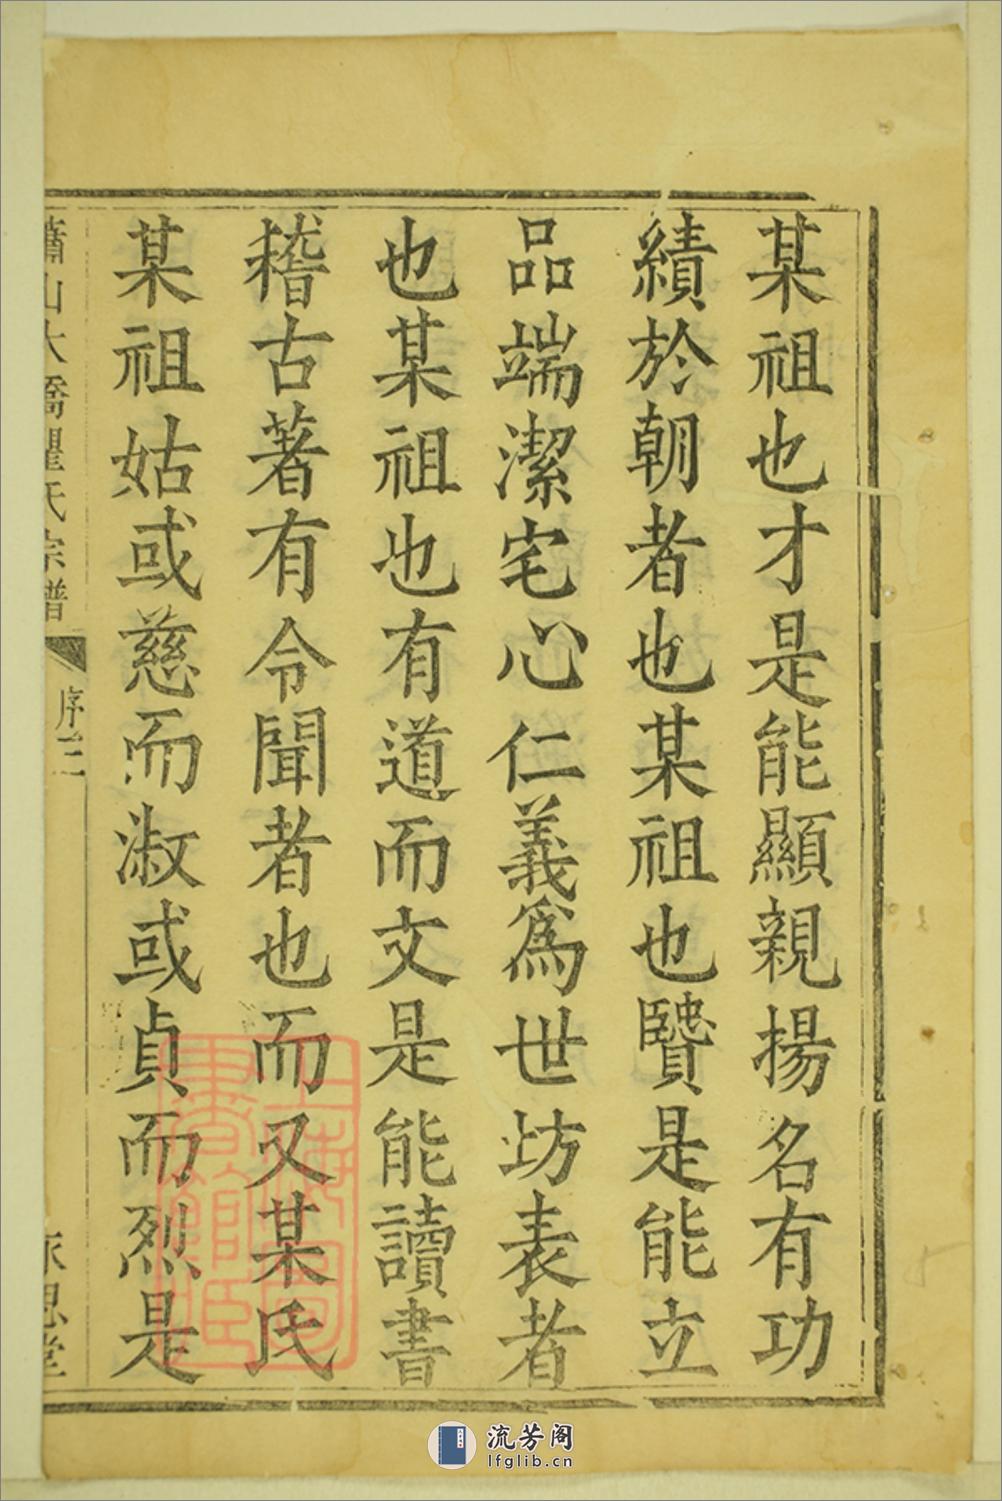 某祖也才是能顯親揚名有功
績於朝者也某祖也賢是能立
品端潔宅心仁義爲世坊表者
也某祖也有道而文是能讀書
稽古著有令聞者也而又某氏
某祖姑或慈而淑或貞而烈是
蕭山大橋瞿氏宗譜
序三
永思堂
上海圖書館臧
流芳阁
lfglib.cn